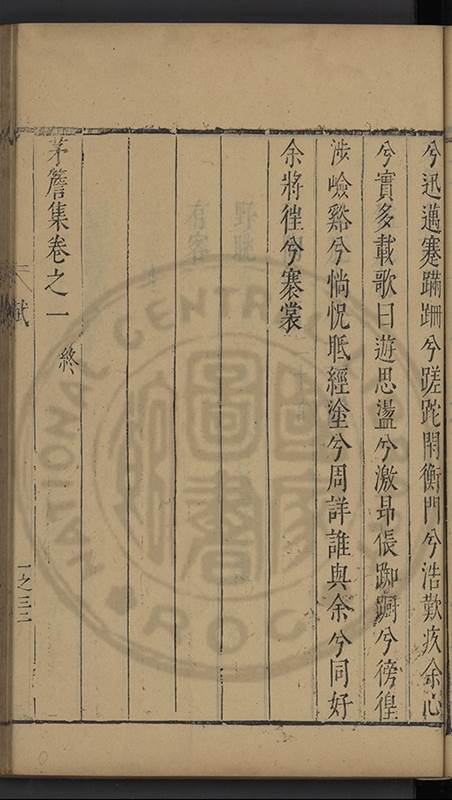 兮迅邁蹇蹣跚兮蹉跎閈衡門兮浩歎疚余心
兮實多載歌曰遊思盪兮激昻倀踟躕兮徬徨
涉嶮谿兮惝怳眂經塗兮周詳誰與余兮同好
余將徨兮褰裳
茅簷集卷之一 終
賦
一之三二